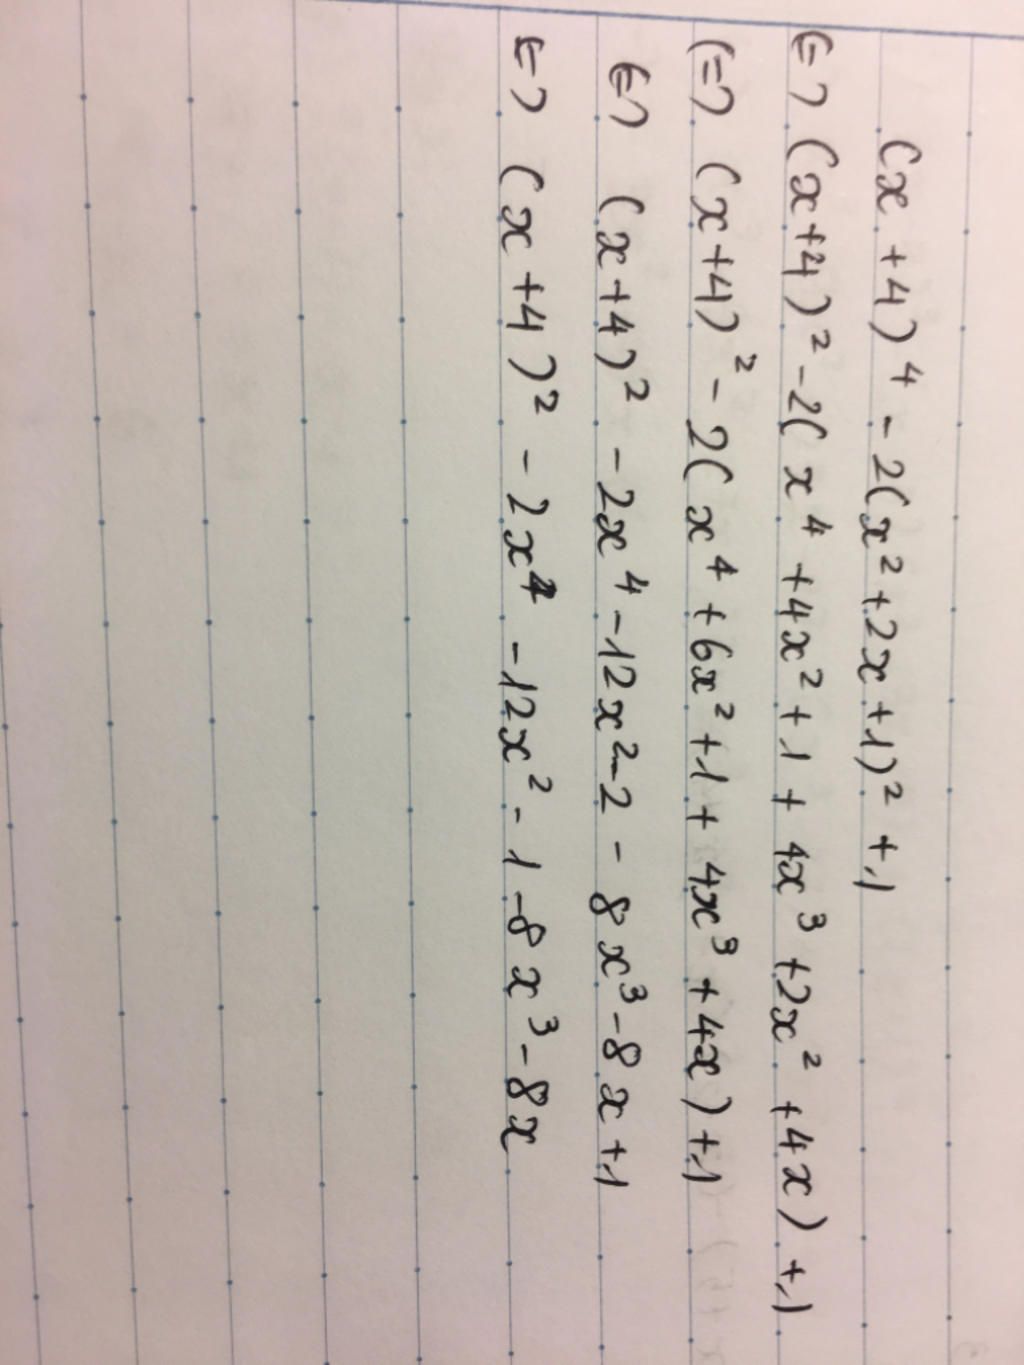 (x+4)⁴ - 2(x²+2x+1)² +1
<=> (x+4)² - 2(x⁴ +4x² +1 + 4x³ +2x² +4x) +1
(=) (x+4)² - 2(x⁴ +6x² +1 + 4x³ +4x) +1
<=> (x+4)² - 2x⁴ -12x² -2 - 8x³ -8x +1
<=> (x+4)² - 2x⁴ -12x² - 1 -8x³ -8x